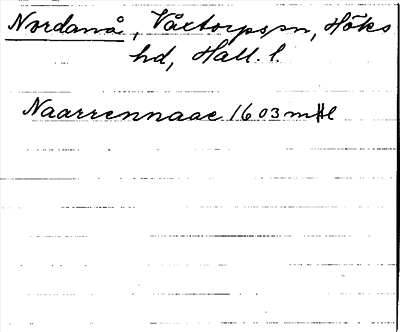 Nordanå, Våxtorpspn, Höks
hd, Hall. l.
Naarrennaae 1603 mHl